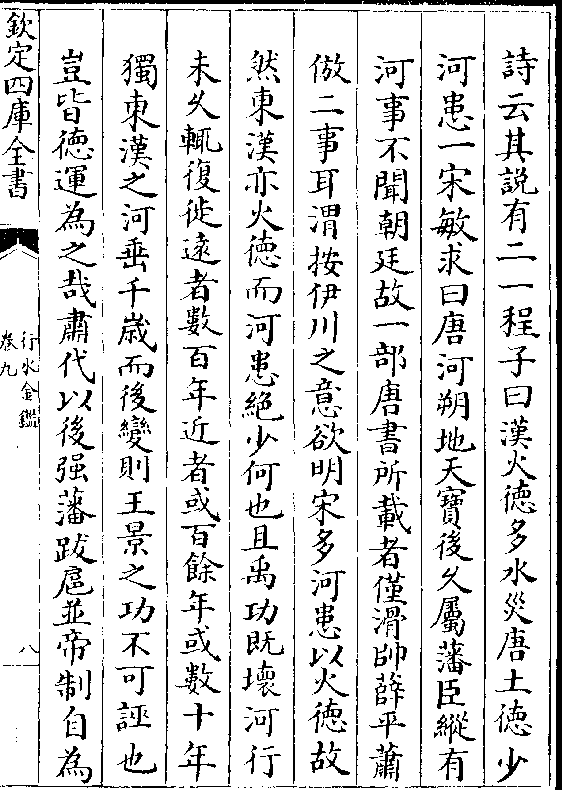 詩云其説有二一程子曰漢火德多水災唐土德少
河患一宋敏求曰唐河朔地天寶後久屬藩臣縱有
河事不聞朝廷故一部唐書所載者僅滑帥薛平蕭
倣二事耳渭按伊川之意欲明宋多河患以火德故
然東漢亦火德而河患絶少何也且禹功既壞河行
未久輒復徙遠者數百年近者或百餘年或數十年
獨東漢之河垂千歳而後變則王景之功不可誣也
豈皆德運為之哉肅代以後强藩跋扈並帝制自為
欽定四庫全書
行水金鑑
卷九
八